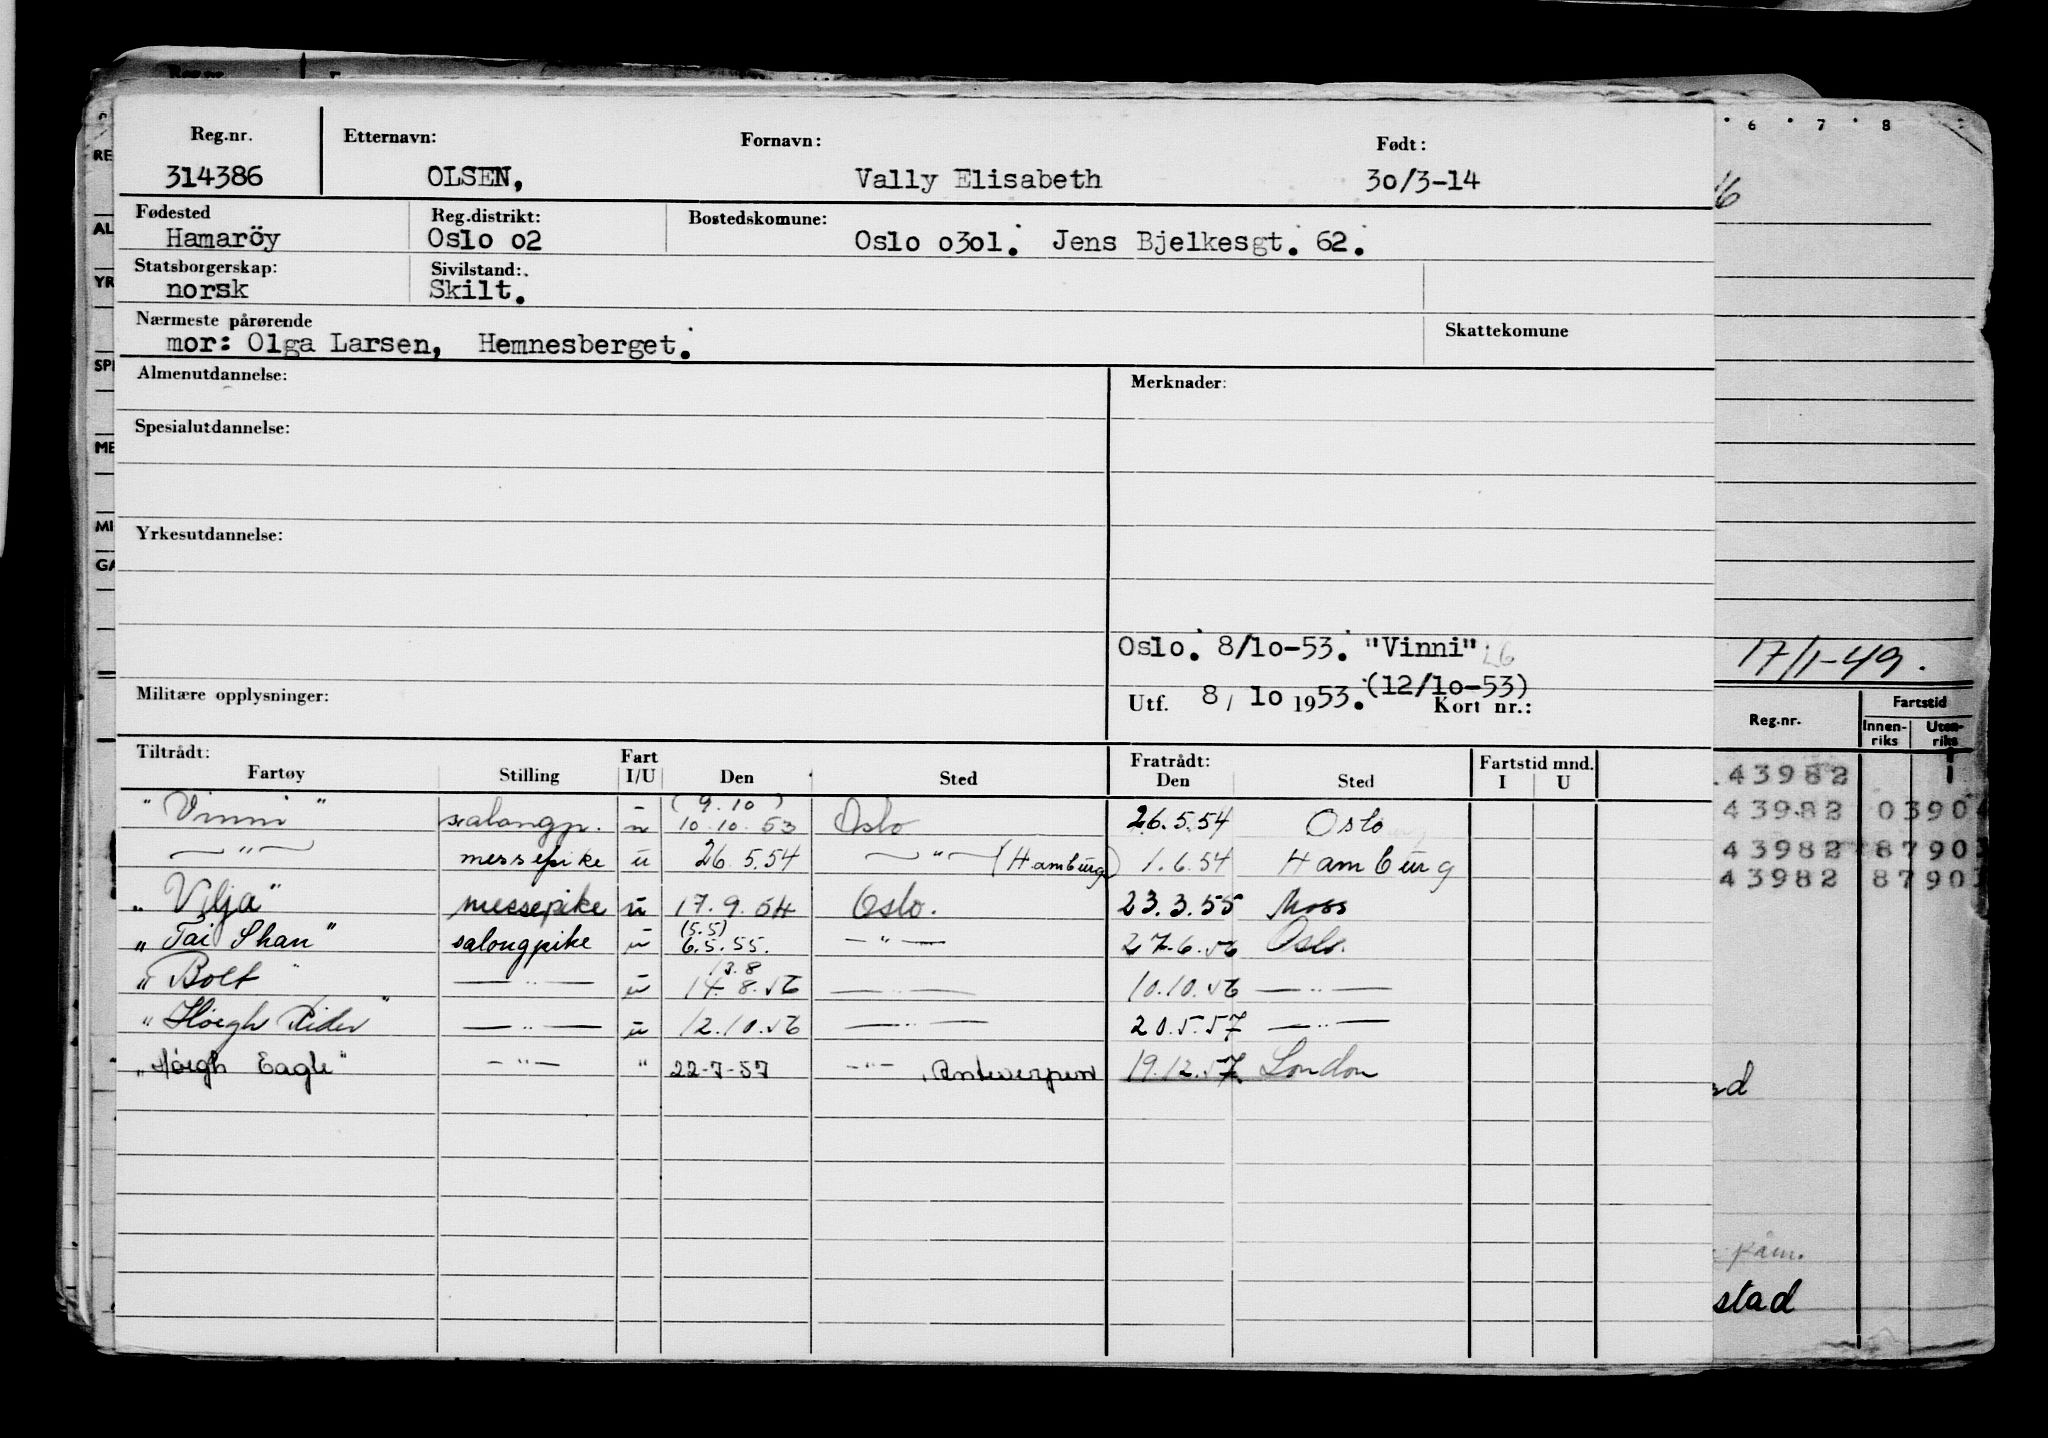 Reg.nr. Etternavn: Fornavn: Født:
314386 OLSEN, Vally Elisabeth 30/3-14
Fødested Reg.distrikt: Bostedskomune:
Hamaröy Oslo o2 Oslo o3o1. Jens Bjelkesgt. 62.
Statsborgerskap: Sivilstand:
norsk Skilt.
Nærmeste pårørende Skattekomune
mor: Olga Larsen, Hemnesberget.
Almenutdannelse: Merknader:
Spesialutdannelse:
Yrkesutdannelse:
Oslo. 8/1o-53. "Vinni"
(12/1o-53)
Militære opplysninger: Utf. 8 / 1o 1953. Kort nr.:
Tiltrådt: Fart Fratrådt: Fartstid mnd.
Fartøy Stilling I/U Den Sted Den Sted I U
(9.10)
"Vinni" salongp. u 10.10.53 Oslo 26.5.54 Oslo
— " — messepike u 26.5.54 — " — (Hamburg) 1.6.54 Hamburg
"Vilja" messepike u 17.9.54 Oslo. 23.3.55 Moss
(5.5)
"Tai Shan" salongpike u 6.5.55. — " — 27.6.56 Oslo.
13.8
"Bolt" — " — u 14.8.56 — " — 10.10.56 — " —
"Høegh Rider" — " — u 12.10.56 — " — 20.5.57 — " —
"Høegh Eagle" — " — " 22-7-57 — " — , Antwerpen 19.12.57. London
6 7 8
RE
AL
YR
SPE
ME
MI
GA
17/1-49.
Reg.nr. Fartstid
Innen-riks Uten-riks
43982
43982 0390
43982 8790
43982 8790
stad